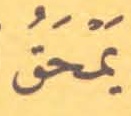 يَمْحَقُ